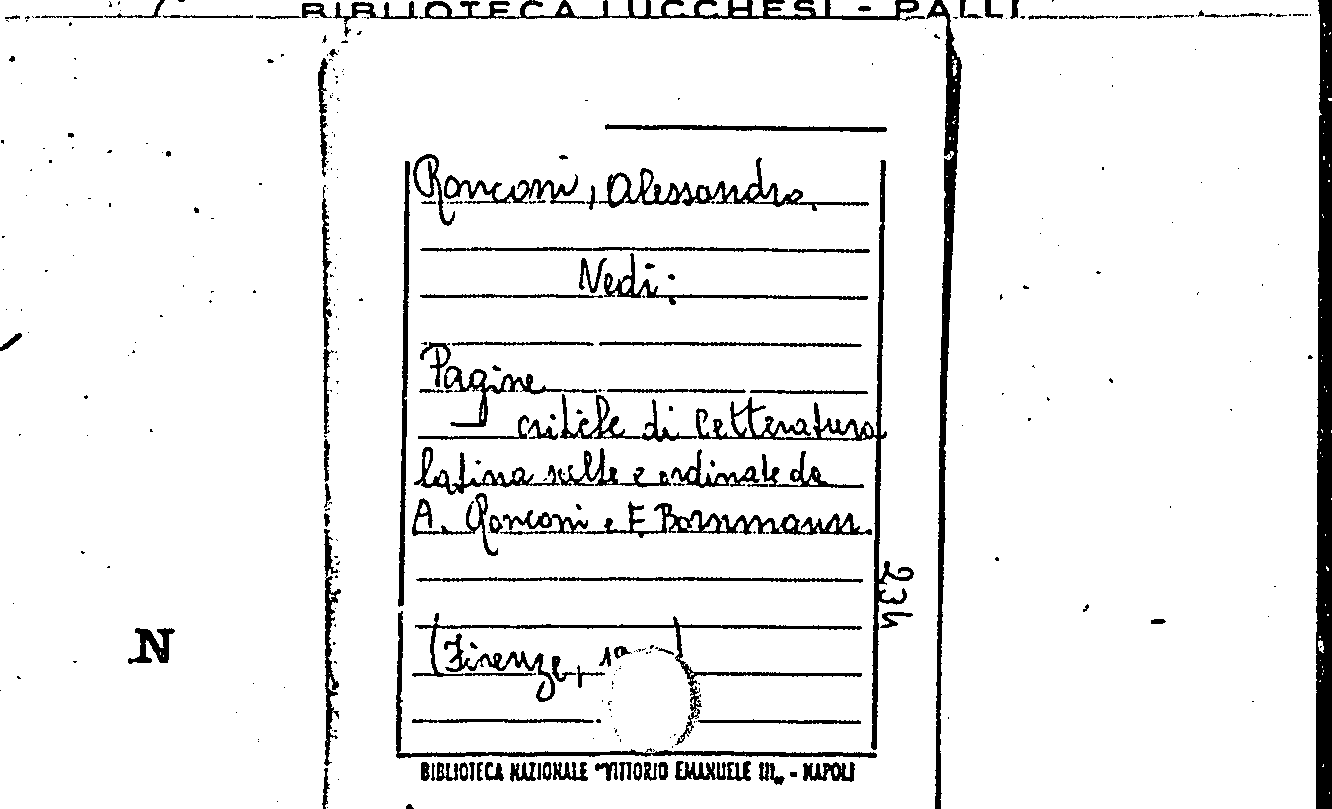 BIBLIOTECA LUCCHESI - PALLI
Ronconi, Alessandro.
Vedi:
Pagine
critiche di letteratura
latina scelte e ordinate da
A. Ronconi e F. Bornmann.
234
(Firenze, 19 )
N
BIBLIOTECA NAZIONALE "VITTORIO EMANUELE III„ - NAPOLI